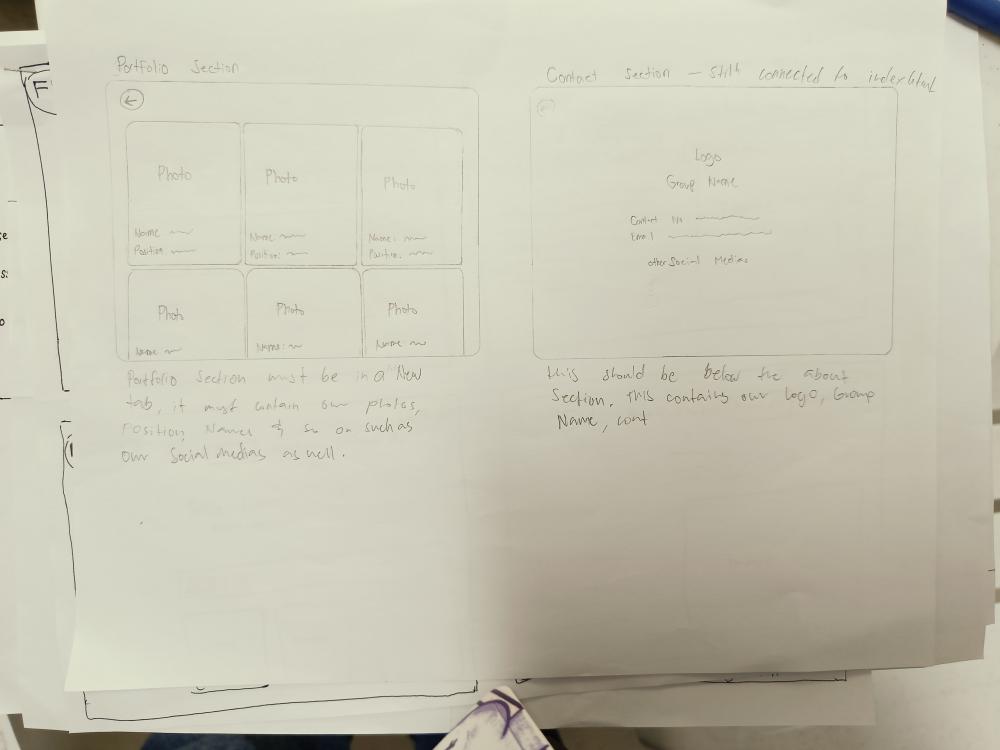 Portfolio Section
Photo
Photo
Photo
Name
Position
Name
Position:
Name:
Position:
Photo
Photo
Photo
Name
Name:
Name
Portfolio Section must be in a New
tab, it must contain our photos,
Position, Names & so on such as
our Social medias as well.
Contact Section - Still connected to index.html
Logo
Group Name
Contact No
Email
other Social Medias
this should be below the about
Section. This contains our Logo, Group
Name, cont
F